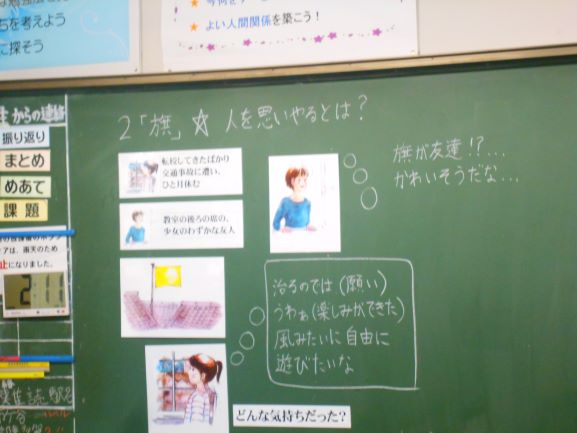 ちを考えよう
に探そう
★ よい人間関係を築こう!
からの連絡
振り返り
まとめ
めあて
課題
アは、雨天のため
止になりました。
2 「旗」 ☆ 人を思いやるとは?
転校してきたばかり
交通事故に遭い、
ひと月休む
教室の後ろの席の、
少女のわずかな友人
旗が友達!?...
かわいそうだな...
治るのでは(願い)
うわぁ(楽しみができた)
風みたいに自由に
遊びたいな
どんな気持ちだった?